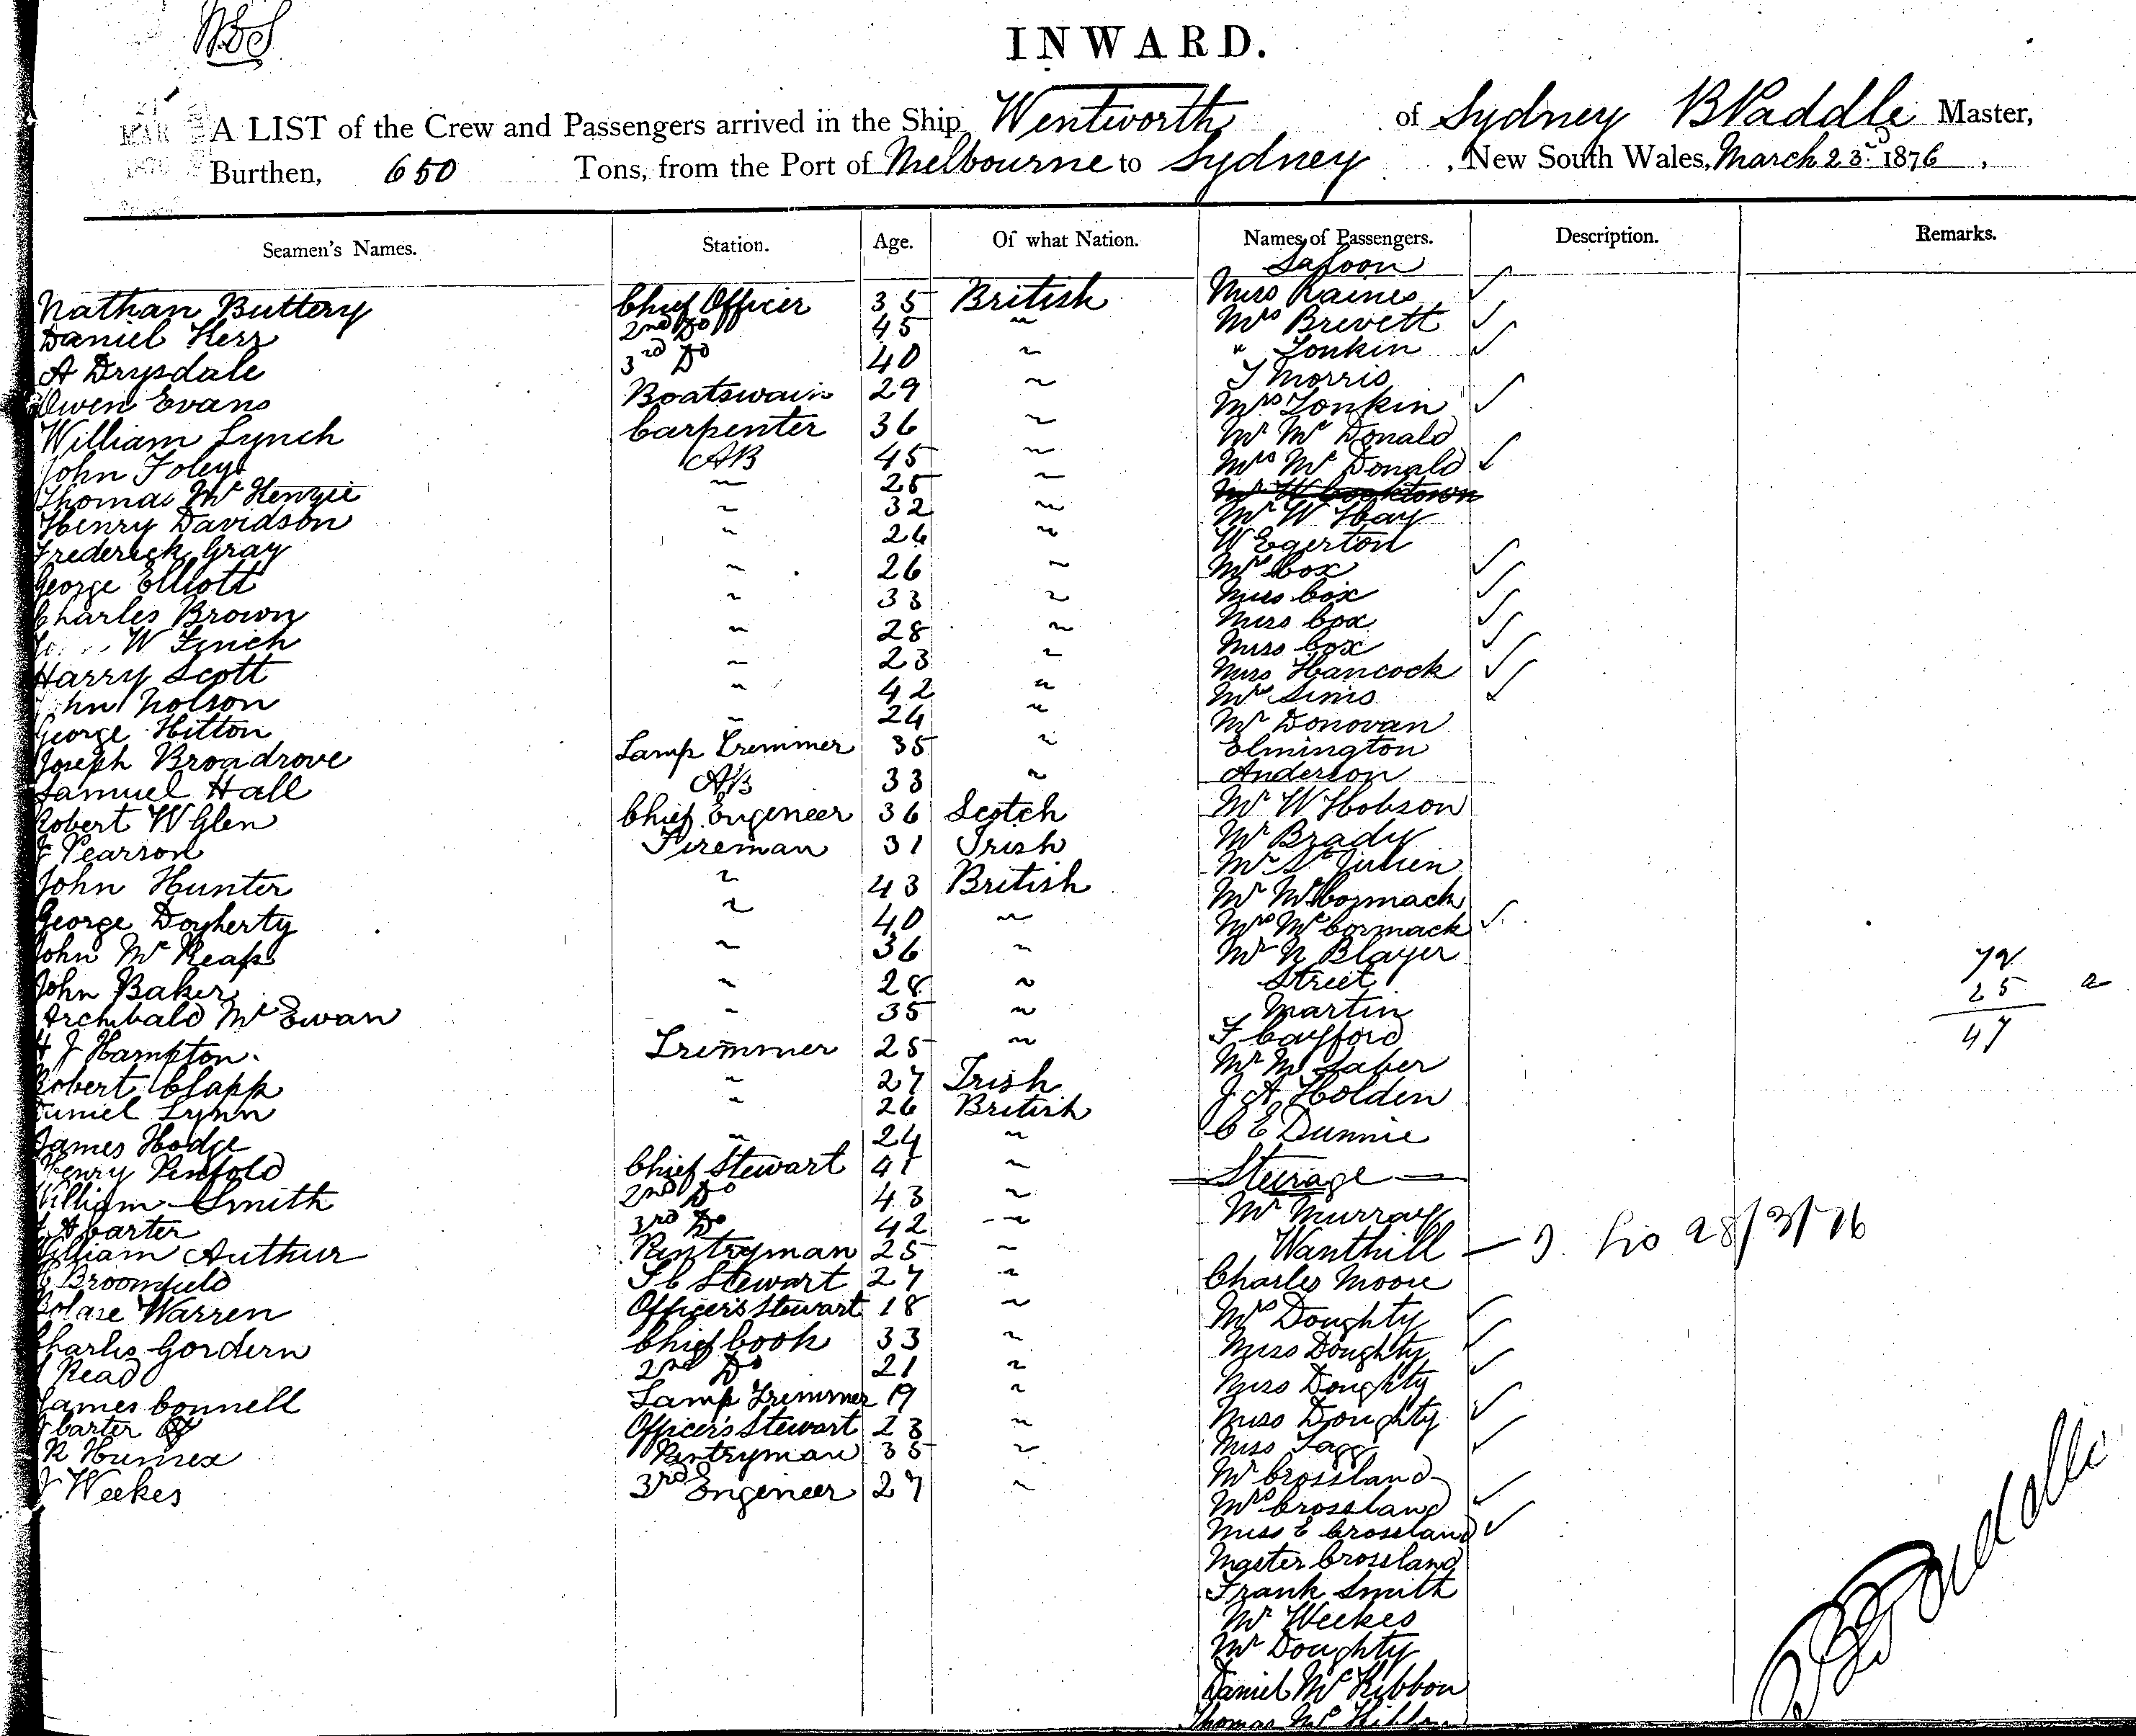 INWARD.
A LIST of the Crew and Passengers arrived in the Ship Wentworth of Sydney B Paddle Master,
Burthen, 650 Tons, from the Port of Melbourne to Sydney, New South Wales, March 23rd 1876,
Seamen's Names. Station. Age. Of what Nation. Names of Passengers. Description. Remarks.
Saloon
Nathan Buttery Chief Officer 35 British Miss Raines ✓
Daniel Kerr 2nd Do 45 " Mrs Brevett ✓
A Drysdale 3rd Do 40 " " Tonkin ✓
Owen Evans Boatswain 29 " T Morris
William Lynch Carpenter 36 " Mrs Tonkin ✓
John Foley AB 45 " Mr Mc Donald
Thomas Mc Kenzie " 25 " Mrs Mc Donald ✓
Henry Davidson " 32 " Mr W Hay
Frederick Gray " 26 " W Egerton
George Elliott " 26 " Mrs Cox ✓
Charles Brown " 33 " Miss Cox ✓
W Finch " 28 " Miss Cox ✓
Harry Scott " 23 " Miss Cox ✓
John Nolson " 42 " Miss Hancock ✓
George Hilton " 24 " Mrs Sims ✓
Joseph Broadrove Lamp Trimmer 35 " Mr Donovan
Samuel Hall AB 33 " Elmington
Robert W Glen Chief Engineer 36 Scotch Anderson
J Pearson Fireman 31 Irish Mr W Hobson
John Hunter " 43 British Mr Brady
George Dogherty " 40 " Mr St Julien
John Mc Reap " 36 " Mr McCormack
John Baker " 28 " Mrs McCormack ✓
Archibald Mc Ewan " 35 " Mr N Blayer
H J Hampton Trimmer 25 " Street
Robert Clapp " 27 Irish Martin
Daniel Lynn " 26 British F Cayford
James Hodge " 24 " Mr M Saber
Henry Penfold Chief Stewart 41 " J A Holden
William Smith 2nd Do 43 " C E Dunnie
A Carter 3rd Do 42 " Steerage
William Authur Pantryman 25 " Mr Murray
Broomfield S C Stewart 27 " Wanthill
Warren Officer's Stewart 18 " Charles Moore
Charles Gordern Chief Cook 33 " Mrs Doughty ✓
Read 2nd Do 21 " Miss Doughty ✓
James Connell Lamp Trimmer 19 " Miss Doughty ✓
J Carter Officer's Stewart 23 " Miss Doughty ✓
R Humex Pantryman 35 " Miss Tagg ✓
J Weekes 3rd Engineer 27 " Mr Crossland
Mrs Crossland ✓
Miss E Crossland ✓
Master Crossland
Frank Smith
Mr Weekes
Mr Doughty
Daniel Mc Kibbon
Thomas Mc Kibbon
72
25
47
28/3/76